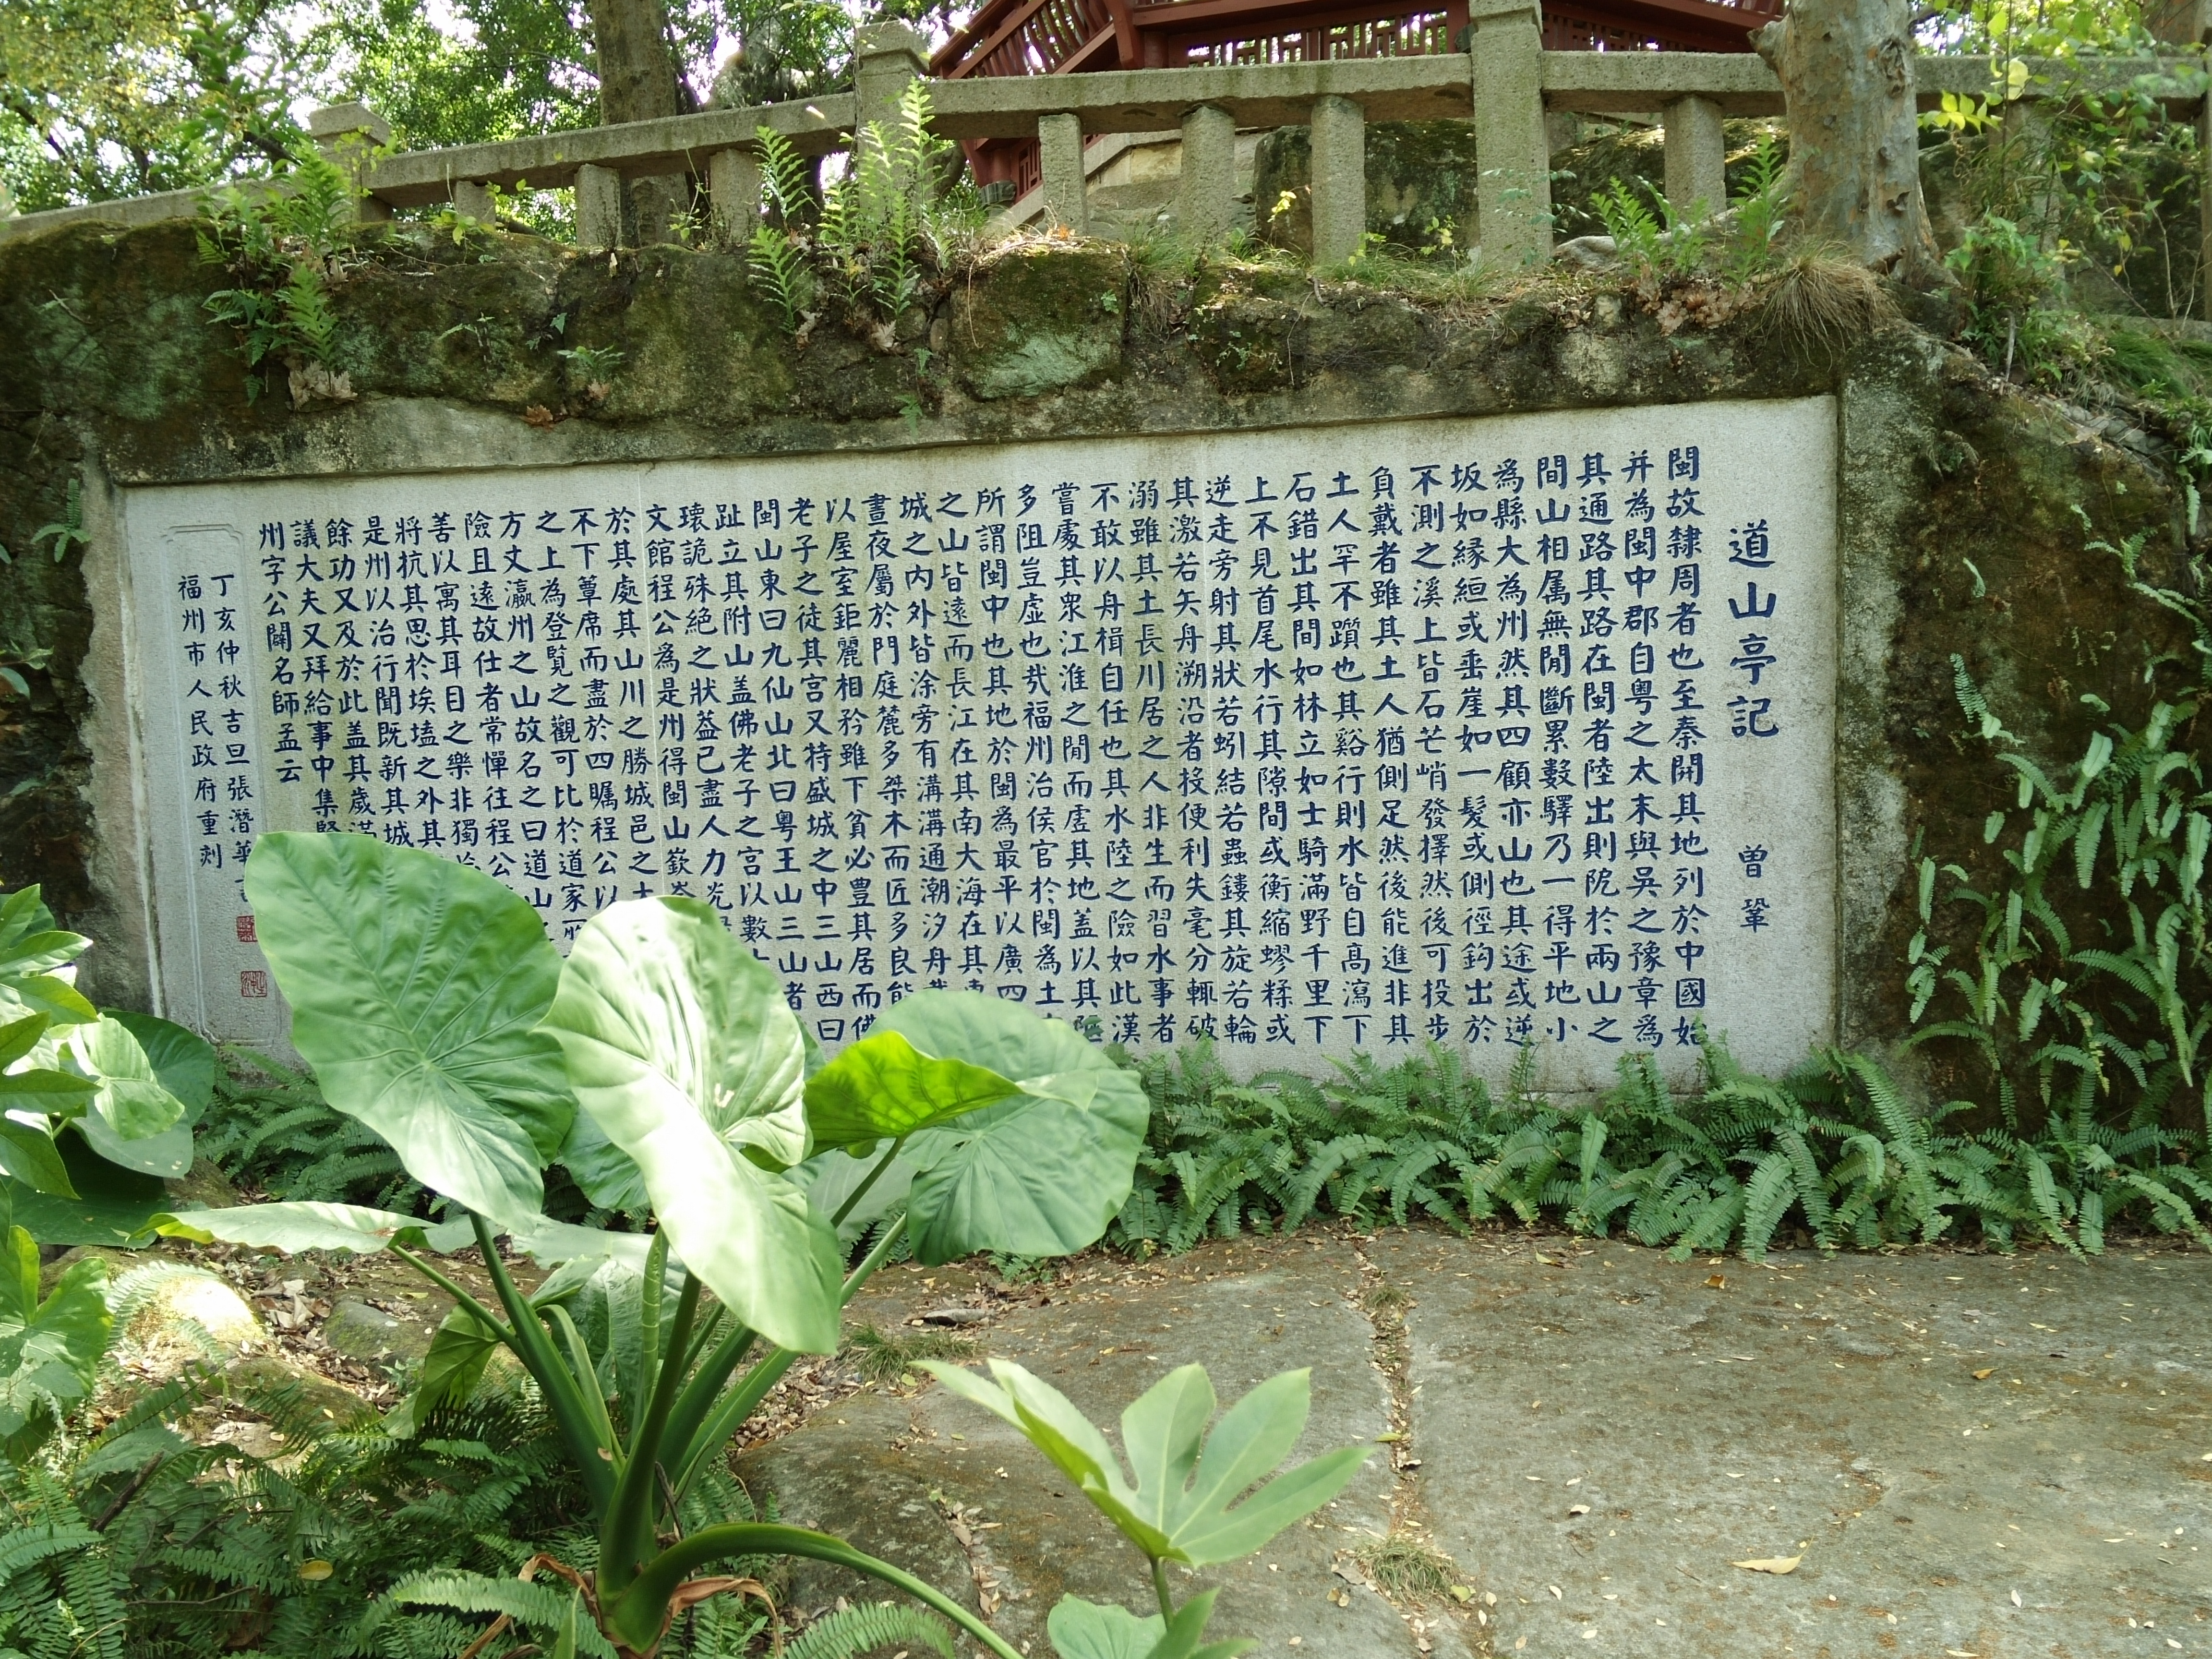 道山亭記 曾鞏
閩故隸周者也至秦開其地列於中國始
并為閩中郡自粵之太末與吳之豫章為
其通路其路在閩者陸出則阸於兩山之
間山相属無閒斷累數驛乃一得平地小
為縣大為州然其四顧亦山也其途或逆
坂如緣絙或垂崖如一髮或側徑鈎出於
不測之溪上皆石芒峭發擇然後可投步
負戴者雖其土人猶側足然後能進非其
土人罕不躓也其谿行則水皆自高瀉下
石錯出其間如林立如士騎滿野千里下
上不見首尾水行其隙間或衡縮蟉糅或
逆走旁射其狀若蚓結若蟲鏤其旋若輪
其激若矢舟溯沿者投便利失毫分輒破
溺雖其土長川居之人非生而習水事者
不敢以舟楫自任也其水陸之險如此漢
嘗處其眾江淮之閒而虛其地蓋以其陿
多阻豈虛也哉福州治侯官於閩為土
所謂閩中也其地於閩為最平以廣四
之山皆遠而長江在其南大海在其
城之內外皆涂旁有溝溝通潮汐舟
晝夜屬於門庭麓多桀木而匠多良能
以屋室鉅麗相矜雖下貧必豐其居而佛
老子之徒其宮又特盛城之中三山西曰
閩山東曰九仙山北曰粵王山三山者
趾立其附山蓋佛老子之宮以數
瓌詭殊絕之狀蓋已盡人力光
文館程公為是州得閩山嶔崟
於其處其山川之勝城邑之
不下簟席而盡於四矚程公以
之上為登覽之觀可比於道家
方丈瀛州之山故名之曰道山
險且遠故仕者常憚往程公
善以寓其耳目之樂非獨
將抗其思於埃壒之外其
是州以治行聞既新其城
餘功又及於此蓋其歲滿
議大夫又拜給事中集賢
州字公闢名師孟云
丁亥仲秋吉旦張潛華
福州市人民政府重刻